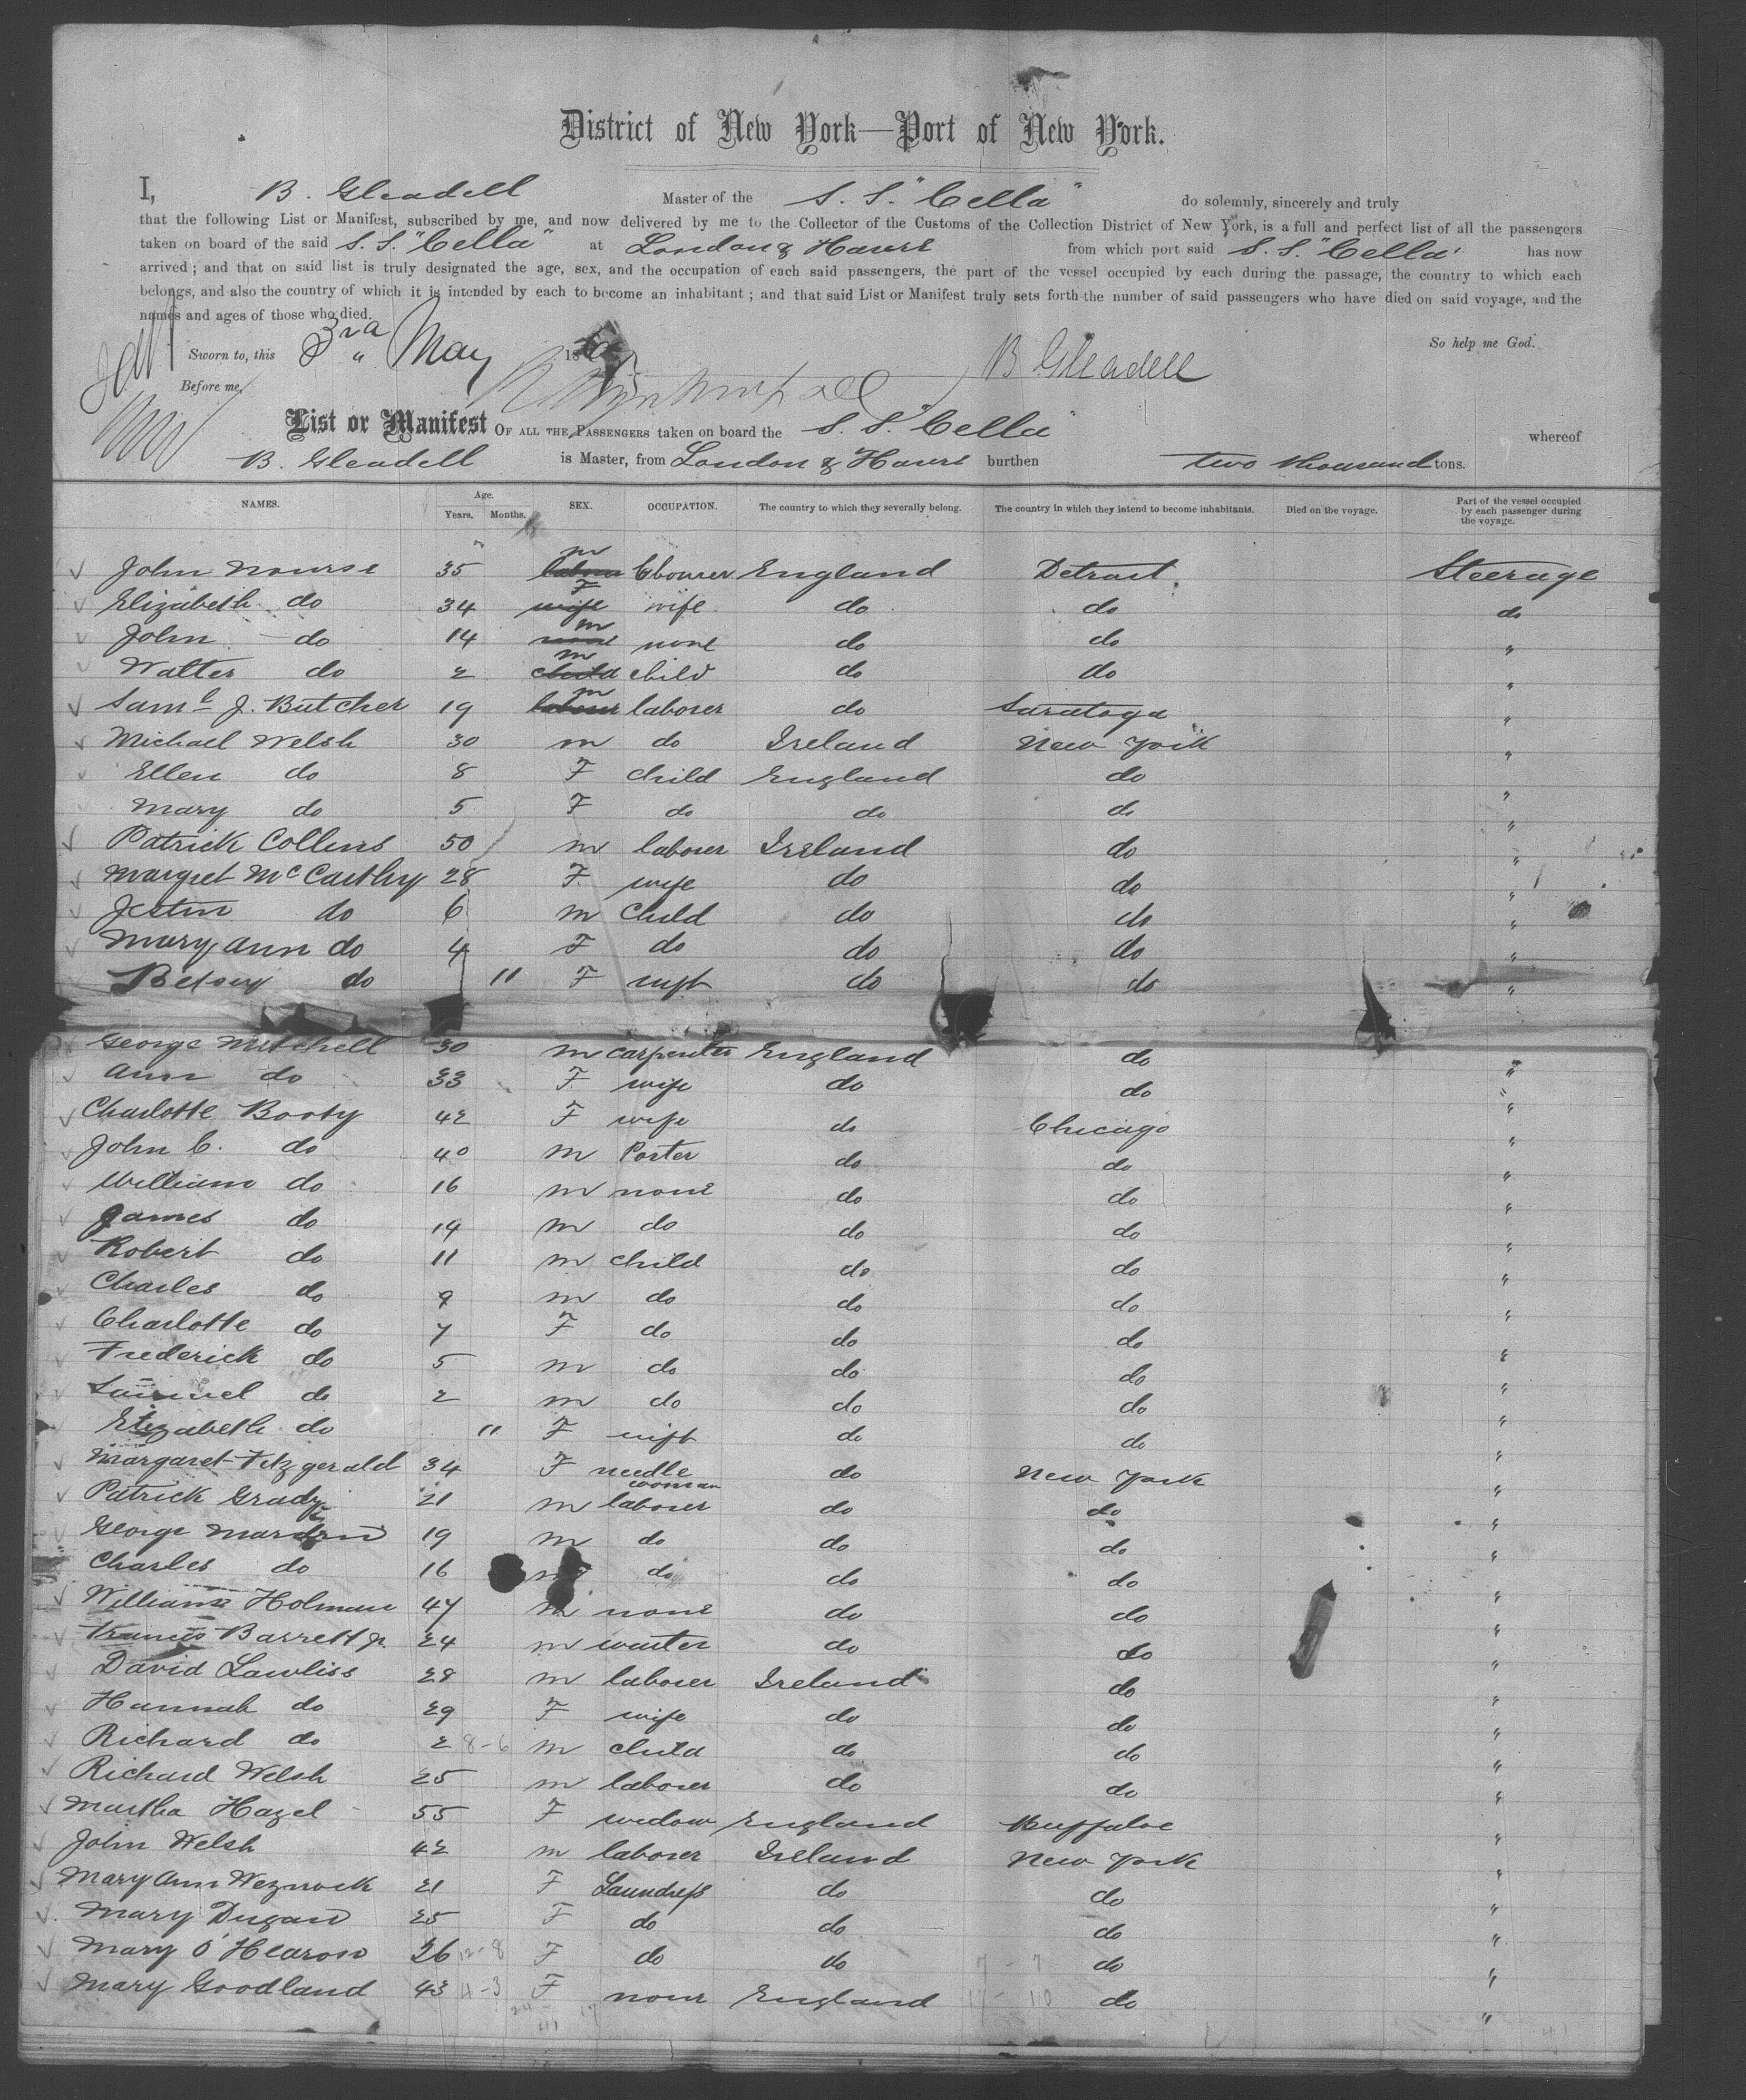 District of New York—Port of New York.
I, B. Gleadell Master of the S. S. "Cella" do solemnly, sincerely and truly
that the following List or Manifest, subscribed by me, and now delivered by me to the Collector of the Customs of the Collection District of New York, is a full and perfect list of all the passengers
taken on board of the said S. S. "Cella" at London & Havre from which port said S. S. "Cella" has now
arrived; and that on said list is truly designated the age, sex, and the occupation of each said passengers, the part of the vessel occupied by each during the passage, the country to which each
belongs, and also the country of which it is intended by each to become an inhabitant; and that said List or Manifest truly sets forth the number of said passengers who have died on said voyage, and the
names and ages of those who died.
So help me God.
Sworn to, this 3rd May 18
B Gleadell
Before me,
List or Manifest OF ALL THE PASSENGERS taken on board the S. S. "Cella" whereof
B. Gleadell is Master, from London & Havre burthen two thousand tons.
NAMES. Age. Years. Months. SEX. OCCUPATION. The country to which they severally belong. The country in which they intend to become inhabitants. Died on the voyage. Part of the vessel occupied by each passenger during the voyage.
John Nourse 35 m labourer England Detroit Steerage
Elizabeth do 34 wife F wife do do do
John do 14 none m none do do "
Walter do 2 child m child do do "
Saml J. Butcher 19 labour m laborer do Saratoga "
Michael Welsh 30 m do Ireland New York "
Ellen do 8 F child England do "
Mary do 5 F do do do "
Patrick Collins 50 m laborer Ireland do "
Margret McCarthy 28 F wife do do "
Jestin do 6 m child do do "
Mary Ann do 4 F do do do "
Betsey do 11 F inft do do "
George Mitchell 30 m carpenter England do "
Ann do 33 F wife do do "
Charlotte Booty 42 F wife do Chicago "
John C. do 40 m Porter do do "
William do 16 m none do do "
James do 14 m do do do "
Robert do 11 m child do do "
Charles do 9 m do do do "
Charlotte do 7 F do do do "
Frederick do 5 m do do do "
Samuel do 2 m do do do "
Elizabeth do 11 F inft do do "
Margaret Fitzgerald 34 F needle woman do New York "
Patrick Grady 21 m laborer do do "
George 19 m do do do "
Charles do 16 m do do do "
William Holman 47 m none do do "
Francis Barrett jr. 24 m waiter do do "
David Lawliss 28 m laborer Ireland do "
Hannah do 29 F wife do do "
Richard do 2 8-6 m child do do "
Richard Welsh 25 m laborer do do "
Martha Hazel 55 F widow England Buffaloe "
John Welsh 42 m laborer Ireland New York "
Mary Ann 21 F Laundress do do "
Mary Dugan 25 F do do do "
Mary O'Hearon 26 12-8 F do do 7-7 do "
Mary Goodland 43 11-3 F none England 17-10 do "
24 - 17
41